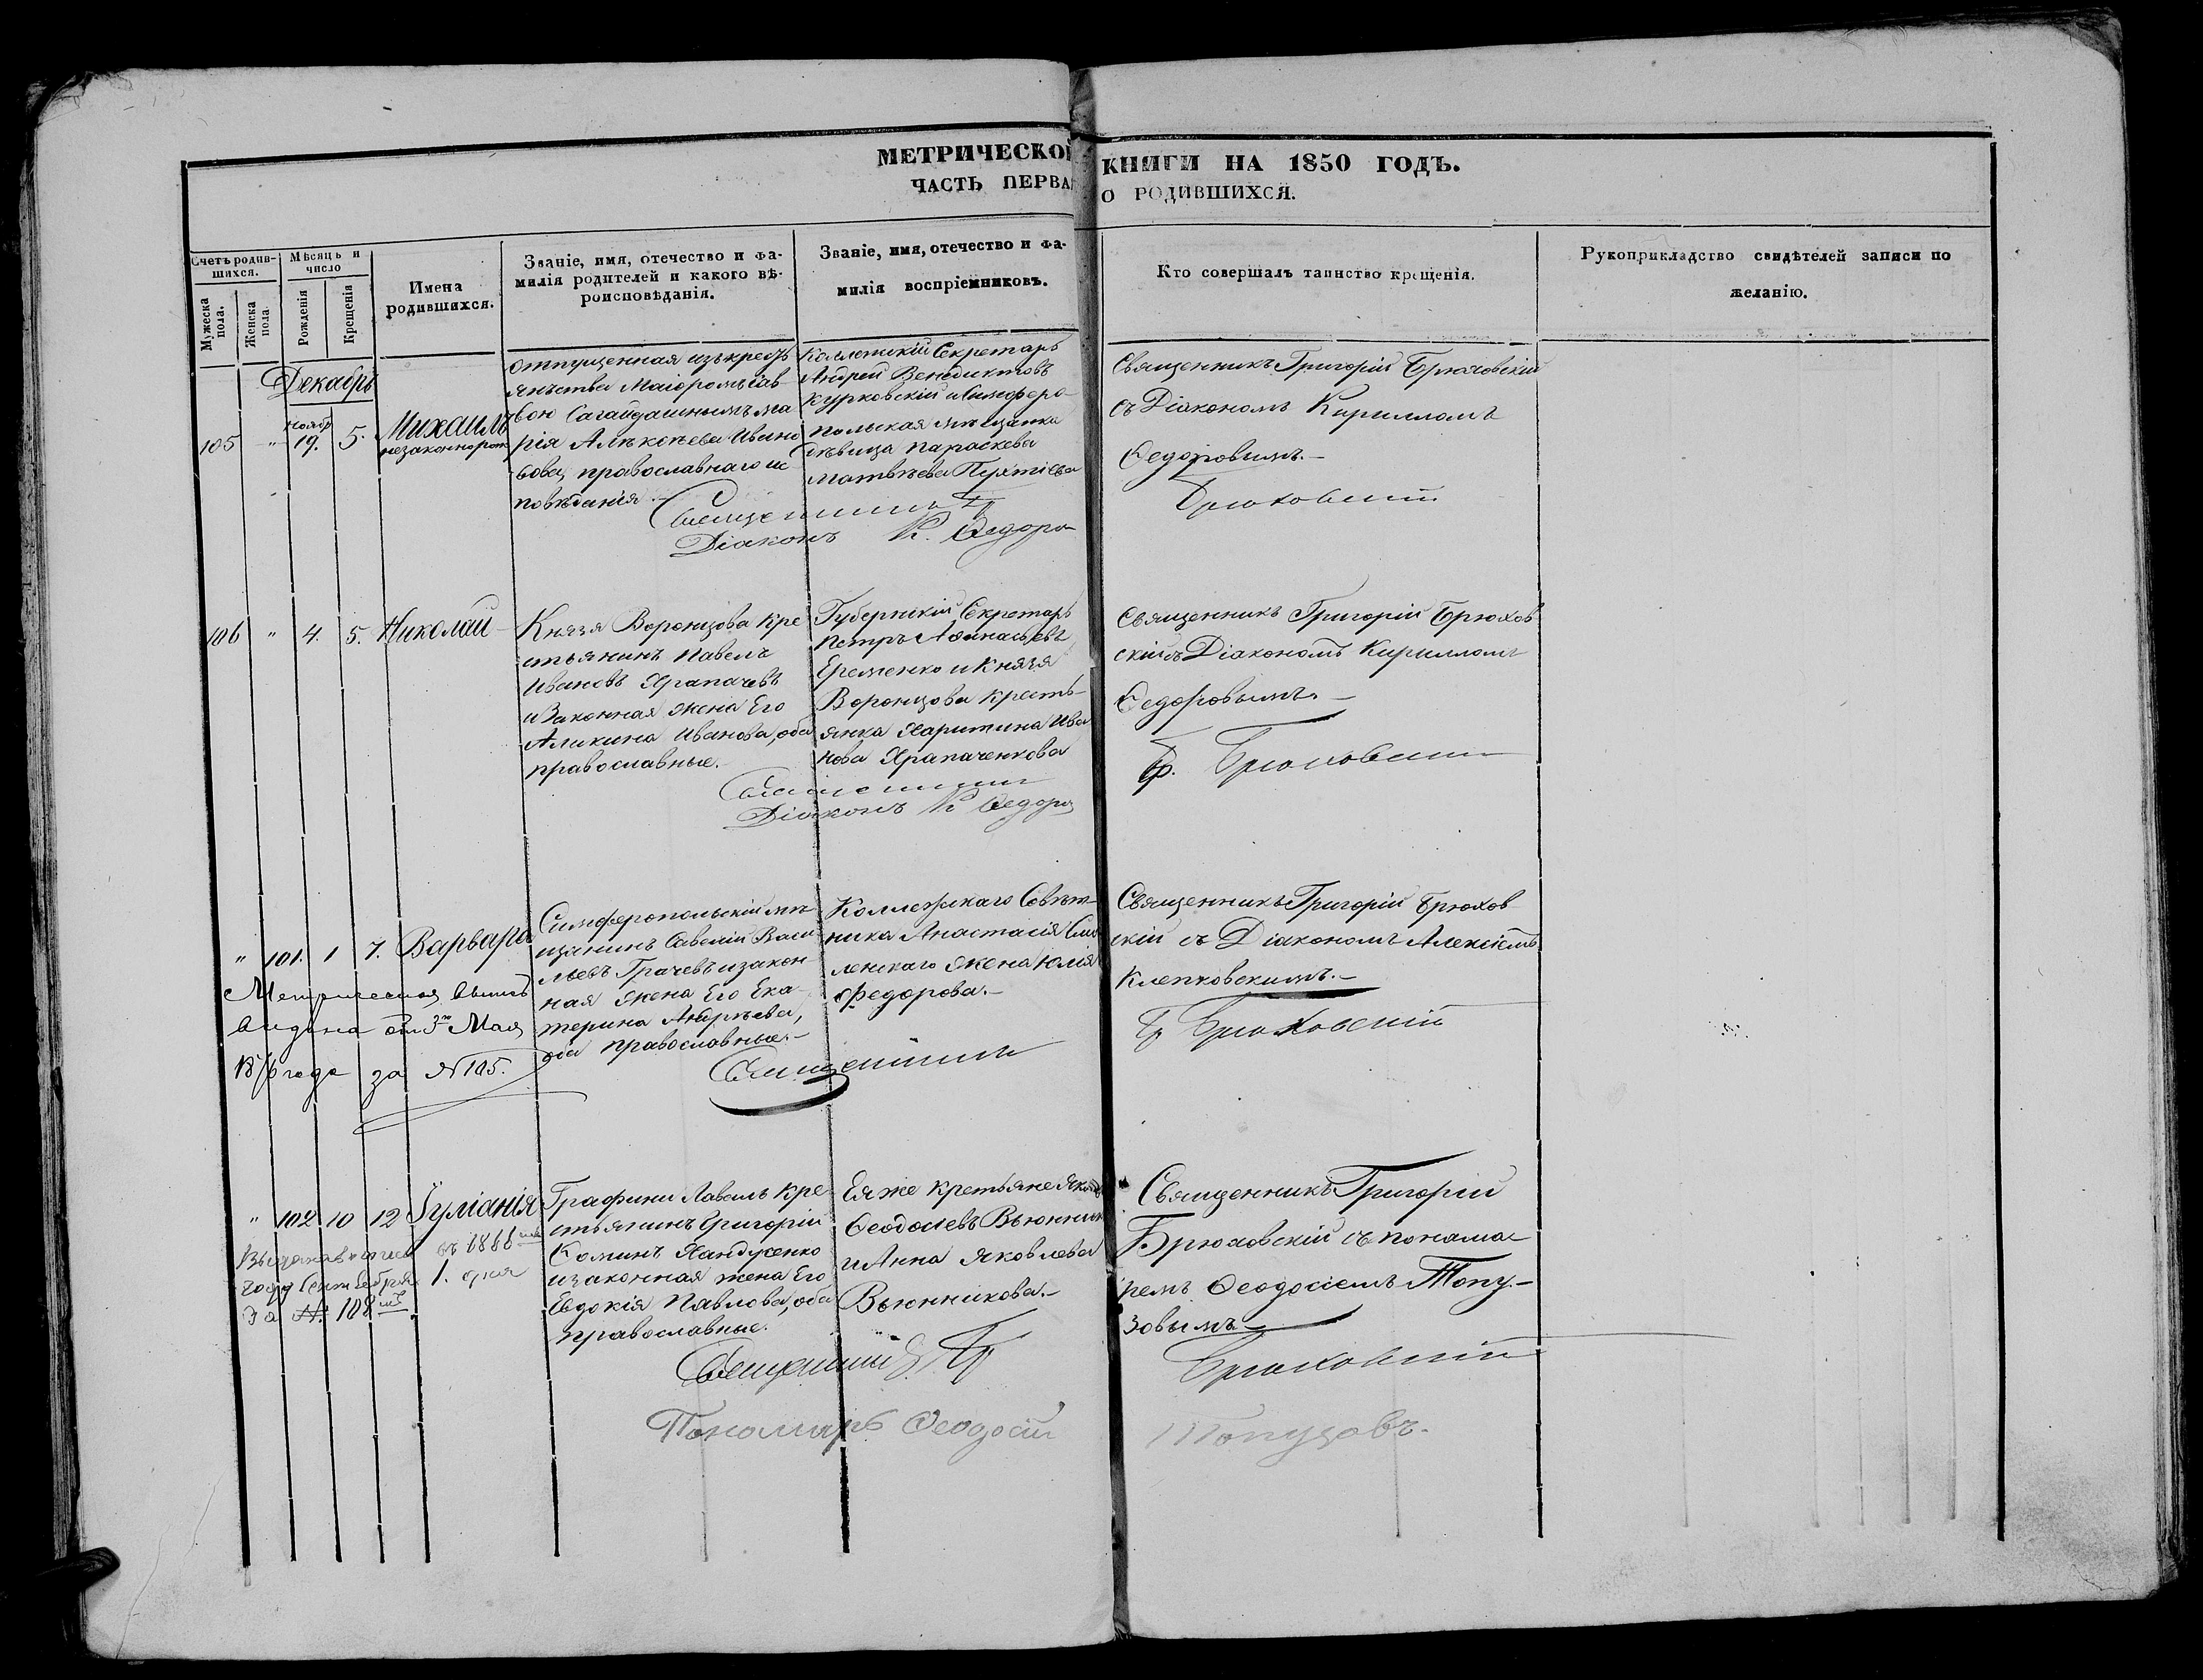 МЕТРИЧЕСКОЙ КНИГИ НА 1850 ГОДЪ.
ЧАСТЬ ПЕРВАЯ О РОДИВШИХСЯ.
Счетъ родив-
шихся.
Мужеска
пола.
Женска
пола.
Мѣсяцъ и
число
Рожденія
Крещенія
Имена
родившихся.
Званіе, имя, отечество и фа-
милія родителей и какого вѣ-
роисповѣданія.
Званіе, имя, отечество и фа-
милія воспріемниковъ.
Кто совершалъ таинство крещенія.
Рукоприкладство свидѣтелей записи по
желанію.
Декабрь
105 " Ноябр 19. 5.
Михаилъ
незаконнорож
отпущенная изъ крест
янства Маіоромъ
вою Сагайдашнымъ ма
рія Алексѣева Ивано
вова, православнаго ис
повѣданія.
Коллежскій Секретарь
Андрей Венедиктовъ
Курковскій и Симферо
польская мѣщанка
дѣвица Параскева
Матвѣева
Священникъ Григорій Брюховскій
съ Діакономъ Кирилломъ
Ѳедоровымъ.-
Священникъ Гр Брюховскій
Діаконъ К. Ѳедоро
106 " 4. 5. Николай
Князя Воронцова Кре
стьянинъ Павелъ
Ивановъ Храпачевъ
и Законная жена Его
Акилина Иванова, оба
православные.
Губернскій Секретарь
Петръ Аѳанасьевъ
Еременко и Князя
Воронцова Кресть-
янка Харитина Ива
нова Храпаченкова
Священникъ Григорій Брюхов
скій съ Діакономъ Кирилломъ
Ѳедоровымъ.-
Священникъ Гр. Брюховскій
Діаконъ К Ѳедоро
" 101. 1 7. Варвара
Симферопольскій мѣ
щанинъ Савелій Васи
льевъ Грачевъ и закон
ная жена Его Ека
терина Андреева,
оба православные.-
Коллежскаго Совѣт-
ника Анастасія Смо
ленскаго жена Юлія
Федорова.-
Священникъ Григорій Брюхов
скій съ Діакономъ Алексіемъ
Клепковскимъ.-
Метрическая выпись
видана 3го Мая
года за № 105.
Священникъ Гр Брюховскій
" 102 10 12 Іуліанія
Графини Лаваль Кре
стьянинъ Григорій
Коминъ Хандуженко
и законная жена Его
Евдокія Павлова, оба
православные.
Ея же Крестьяне Яковъ
Ѳеодосіевъ Вьюнник
и Анна Яковлева
Вьюнникова.-
Священникъ Григорій
Брюховскій съ понама-
ремъ Ѳеодосіемъ Топу-
зовымъ
въ 1888
году Сентября 1. дня
За №. 108
Священникъ Гр Брюховскій
Пономарь Ѳеодосій Топузовъ.